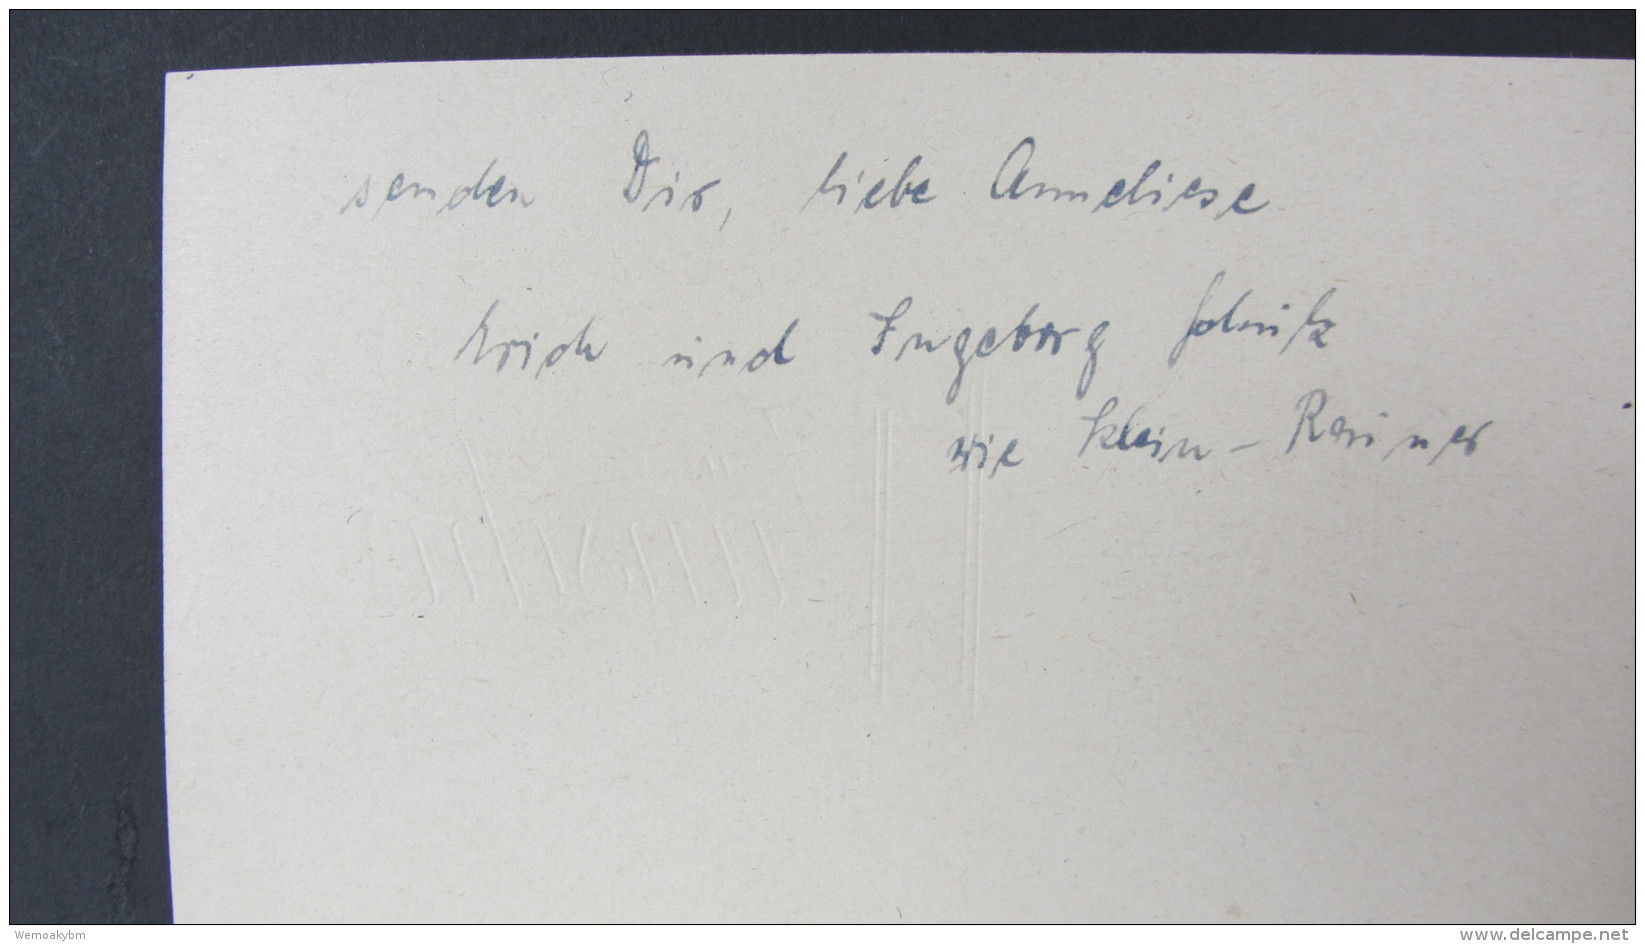 senden Dir, liebe Anneliese
Erich und Ingeborg
wie Klein-Rainer
Wemoakybm
www.delcampe.net